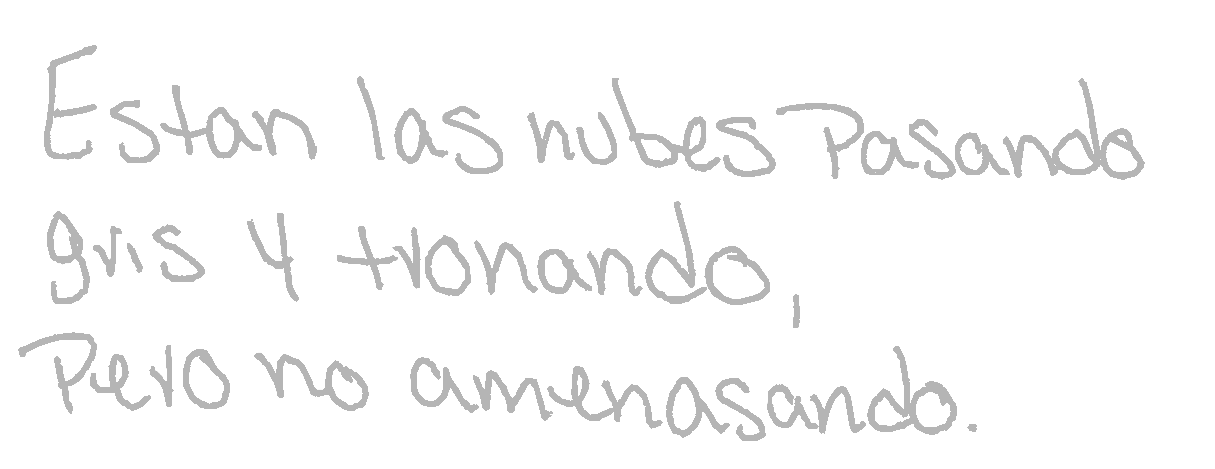 Estan las nubes Pasando
gris y tronando,
Pero no amenasando.